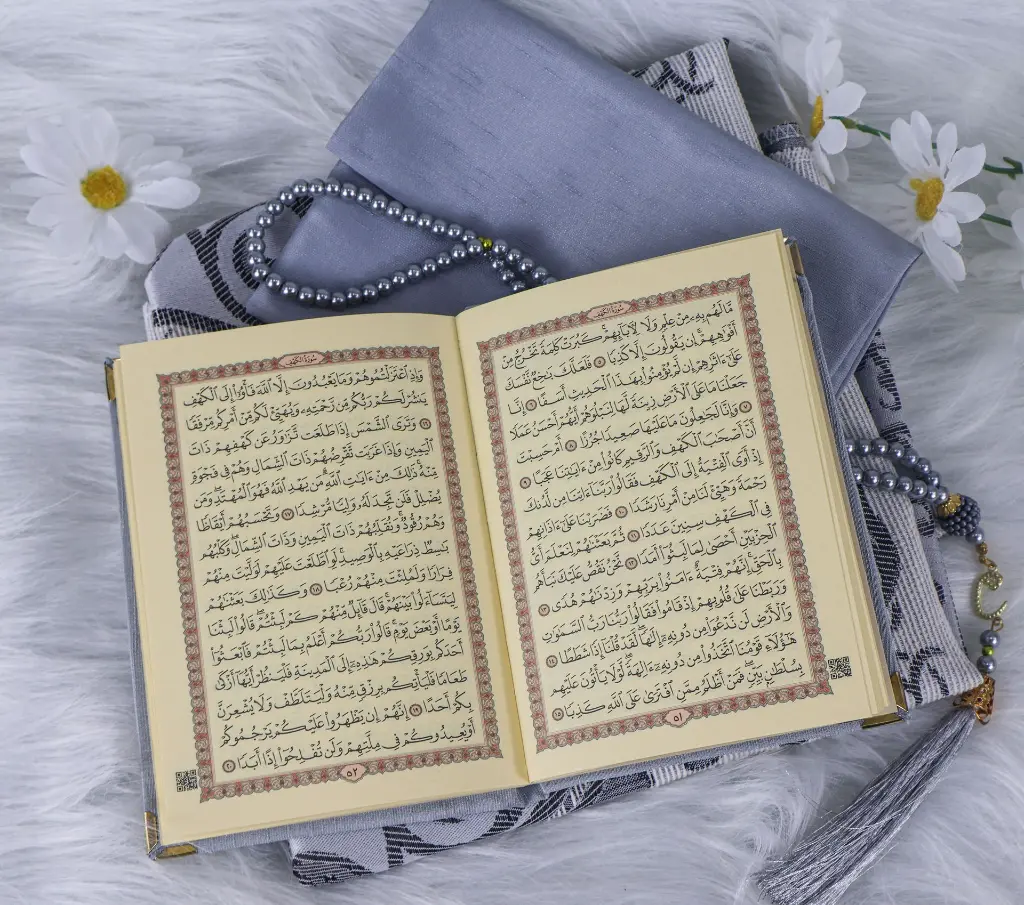 سُورَةُ الكَهْفِ
مَّا لَهُم بِهِۦ مِنْ عِلْمٍ وَلَا لِأٓبَآئِهِمْۚ كَبُرَتْ كَلِمَةً تَخْرُجُ مِنْ
أَفْوَٰهِهِمْۚ إِن يَقُولُونَ إِلَّا كَذِبًا ٥ فَلَعَلَّكَ بَٰخِعٌ نَّفْسَكَ
عَلَىٰٓ ءَاثَٰرِهِمْ إِن لَّمْ يُؤْمِنُوا۟ بِهَٰذَا ٱلْحَدِيثِ أَسَفًا ٦ إِنَّا
جَعَلْنَا مَا عَلَى ٱلْأَرْضِ زِينَةً لَّهَا لِنَبْلُوَهُمْ أَيُّهُمْ أَحْسَنُ عَمَلًا
٧ وَإِنَّا لَجَٰعِلُونَ مَا عَلَيْهَا صَعِيدًا جُرُزًا ٨ أَمْ حَسِبْتَ
أَنَّ أَصْحَٰبَ ٱلْكَهْفِ وَٱلرَّقِيمِ كَانُوا۟ مِنْ ءَايَٰتِنَا عَجَبًا ٩
إِذْ أَوَى ٱلْفِتْيَةُ إِلَى ٱلْكَهْفِ فَقَالُوا۟ رَبَّنَآ ءَاتِنَا مِن لَّدُنكَ
رَحْمَةً وَهَيِّئْ لَنَا مِنْ أَمْرِنَا رَشَدًا ١٠ فَضَرَبْنَا عَلَىٰٓ ءَاذَانِهِمْ
فِى ٱلْكَهْفِ سِنِينَ عَدَدًا ١١ ثُمَّ بَعَثْنَٰهُمْ لِنَعْلَمَ أَىُّ
ٱلْحِزْبَيْنِ أَحْصَىٰ لِمَا لَبِثُوٓا۟ أَمَدًا ١٢ نَّحْنُ نَقُصُّ عَلَيْكَ نَبَأَهُم
بِٱلْحَقِّۚ إِنَّهُمْ فِتْيَةٌ ءَامَنُوا۟ بِرَبِّهِمْ وَزِدْنَٰهُمْ هُدًى ١٣
وَرَبَطْنَا عَلَىٰ قُلُوبِهِمْ إِذْ قَامُوا۟ فَقَالُوا۟ رَبُّنَا رَبُّ ٱلسَّمَٰوَٰتِ
وَٱلْأَرْضِ لَن نَّدْعُوَا۟ مِن دُونِهِۦٓ إِلَٰهًاۖ لَّقَدْ قُلْنَآ إِذًا شَطَطًا ١٤
هَٰٓؤُلَآءِ قَوْمُنَا ٱتَّخَذُوا۟ مِن دُونِهِۦٓ ءَالِهَةًۖ لَّوْلَا يَأْتُونَ عَلَيْهِم
بِسُلْطَٰنٍۭ بَيِّنٍۖ فَمَنْ أَظْلَمُ مِمَّنِ ٱفْتَرَىٰ عَلَى ٱللَّهِ كَذِبًا ١٥
٥١
سُورَةُ الكَهْفِ
وَإِذِ ٱعْتَزَلْتُمُوهُمْ وَمَا يَعْبُدُونَ إِلَّا ٱللَّهَ فَأْوُۥٓا۟ إِلَى ٱلْكَهْفِ
يَنشُرْ لَكُمْ رَبُّكُم مِّن رَّحْمَتِهِۦ وَيُهَيِّئْ لَكُم مِّنْ أَمْرِكُم مِّرْفَقًا
١٦ وَتَرَى ٱلشَّمْسَ إِذَا طَلَعَت تَّزَٰوَرُ عَن كَهْفِهِمْ ذَاتَ
ٱلْيَمِينِ وَإِذَا غَرَبَت تَّقْرِضُهُمْ ذَاتَ ٱلشِّمَالِ وَهُمْ فِى فَجْوَةٍ
مِّنْهُۚ ذَٰلِكَ مِنْ ءَايَٰتِ ٱللَّهِۗ مَن يَهْدِ ٱللَّهُ فَهُوَ ٱلْمُهْتَدِۖ وَمَن
يُضْلِلْ فَلَن تَجِدَ لَهُۥ وَلِيًّا مُّرْشِدًا ١٧ وَتَحْسَبُهُمْ أَيْقَاظًا
وَهُمْ رُقُودٌۚ وَنُقَلِّبُهُمْ ذَاتَ ٱلْيَمِينِ وَذَاتَ ٱلشِّمَالِۖ وَكَلْبُهُم
بَٰسِطٌ ذِرَاعَيْهِ بِٱلْوَصِيدِۚ لَوِ ٱطَّلَعْتَ عَلَيْهِمْ لَوَلَّيْتَ مِنْهُمْ
فِرَارًا وَلَمُلِئْتَ مِنْهُمْ رُعْبًا ١٨ وَكَذَٰلِكَ بَعَثْنَٰهُمْ
لِيَتَسَآءَلُوا۟ بَيْنَهُمْۚ قَالَ قَآئِلٌ مِّنْهُمْ كَمْ لَبِثْتُمْۖ قَالُوا۟ لَبِثْنَا
يَوْمًا أَوْ بَعْضَ يَوْمٍۚ قَالُوا۟ رَبُّكُمْ أَعْلَمُ بِمَا لَبِثْتُمْ فَٱبْعَثُوٓا۟
أَحَدَكُم بِوَرِقِكُمْ هَٰذِهِۦٓ إِلَى ٱلْمَدِينَةِ فَلْيَنظُرْ أَيُّهَآ أَزْكَىٰ
طَعَامًا فَلْيَأْتِكُم بِرِزْقٍ مِّنْهُ وَلْيَتَلَطَّفْ وَلَا يُشْعِرَنَّ
بِكُمْ أَحَدًا ١٩ إِنَّهُمْ إِن يَظْهَرُوا۟ عَلَيْكُمْ يَرْجُمُوكُمْ
أَوْ يُعِيدُوكُمْ فِى مِلَّتِهِمْ وَلَن تُفْلِحُوٓا۟ إِذًا أَبَدًا ٢٠
٥٢